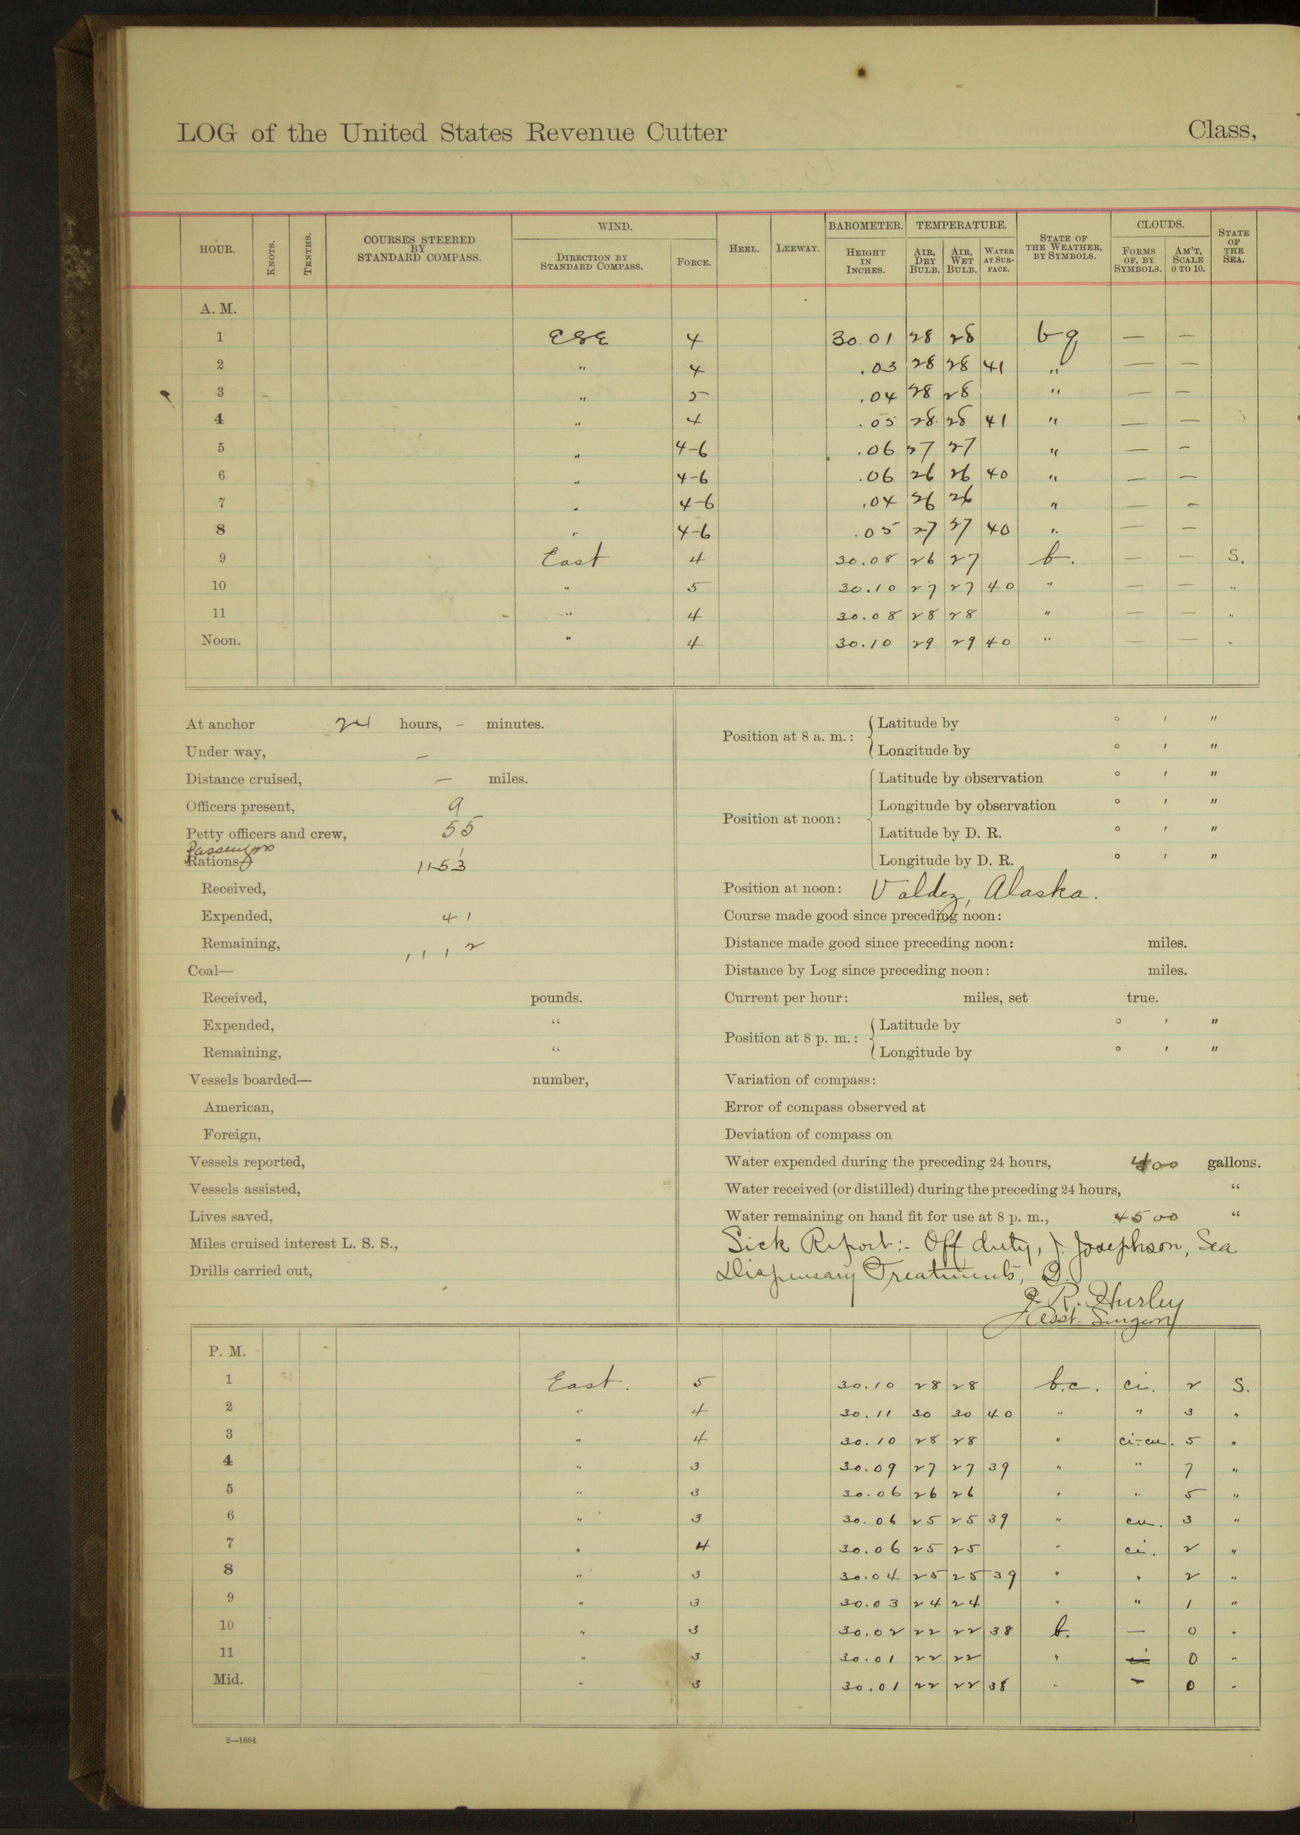 LOG of the United States Revenue Cutter Class,
HOUR. KNOTS. TENTHS. COURSES STEERED BY STANDARD COMPASS. WIND. DIRECTION BY STANDARD COMPASS. FORCE. HEEL. LEEWAY. BAROMETER. HEIGHT IN INCHES. TEMPERATURE. AIR, DRY BULB. AIR, WET BULB. WATER AT SURFACE. STATE OF THE WEATHER, BY SYMBOLS. CLOUDS. FORMS OF, BY SYMBOLS. AM'T, SCALE 0 TO 10. STATE OF THE SEA.
A. M.
1 ESE 4 30.01 28 28 bq — —
2 " 4 .03 28 28 41 " — —
3 " 5 .04 28 28 " — —
4 " 4 .05 28 28 41 " — —
5 " 4-6 .06 27 27 " — —
6 " 4-6 .06 26 26 40 " — —
7 " 4-6 .04 26 26 " — —
8 " 4-6 .05 27 27 40 " — —
9 East 4 30.08 26 27 b. — — S.
10 " 5 30.10 27 27 40 " — — "
11 " 4 30.08 28 28 " — — "
Noon. " 4 30.10 29 29 40 " — — "
At anchor 24 hours, – minutes.
Under way, —
Distance cruised, — miles.
Officers present, 9
Petty officers and crew, 55
Passengers
Rations 1153
Received,
Expended, 41
Remaining, 1112
Coal—
Received, pounds.
Expended, "
Remaining, "
Vessels boarded— number,
American,
Foreign,
Vessels reported,
Vessels assisted,
Lives saved,
Miles cruised interest L. S. S.,
Drills carried out,
Position at 8 a. m.: Latitude by ° ′ ″
Longitude by ° ′ ″
Position at noon: Latitude by observation ° ′ ″
Longitude by observation ° ′ ″
Latitude by D. R. ° ′ ″
Longitude by D. R. ° ′ ″
Position at noon: Valdez, Alaska.
Course made good since preceding noon:
Distance made good since preceding noon: miles.
Distance by Log since preceding noon: miles.
Current per hour: miles, set true.
Position at 8 p. m.: Latitude by ° ′ ″
Longitude by ° ′ ″
Variation of compass:
Error of compass observed at
Deviation of compass on
Water expended during the preceding 24 hours, 400 gallons.
Water received (or distilled) during the preceding 24 hours, "
Water remaining on hand fit for use at 8 p. m., 4500 "
Sick Report:- Off duty, J. Josephson, Sea
Dispensary Treatments, 2.
J. R. Hurley
Asst. Surgeon
P. M.
1 East. 5 30.10 28 28 b.c. ci. 2 S.
2 " 4 30.11 30 30 40 " " 3 "
3 " 4 30.10 28 28 " ci-cu. 5 "
4 " 3 30.09 27 27 39 " " 7 "
5 " 3 30.06 26 26 " " 5 "
6 " 3 30.06 25 25 39 " cu. 3 "
7 " 4 30.06 25 25 " ci. 2 "
8 " 3 30.04 25 25 39 " " 2 "
9 " 3 30.03 24 24 " " 1 "
10 " 3 30.02 22 22 38 b. — 0 "
11 " 3 30.01 22 22 " ci 0 "
Mid. " 3 30.01 22 22 38 " — 0 "
2—1664